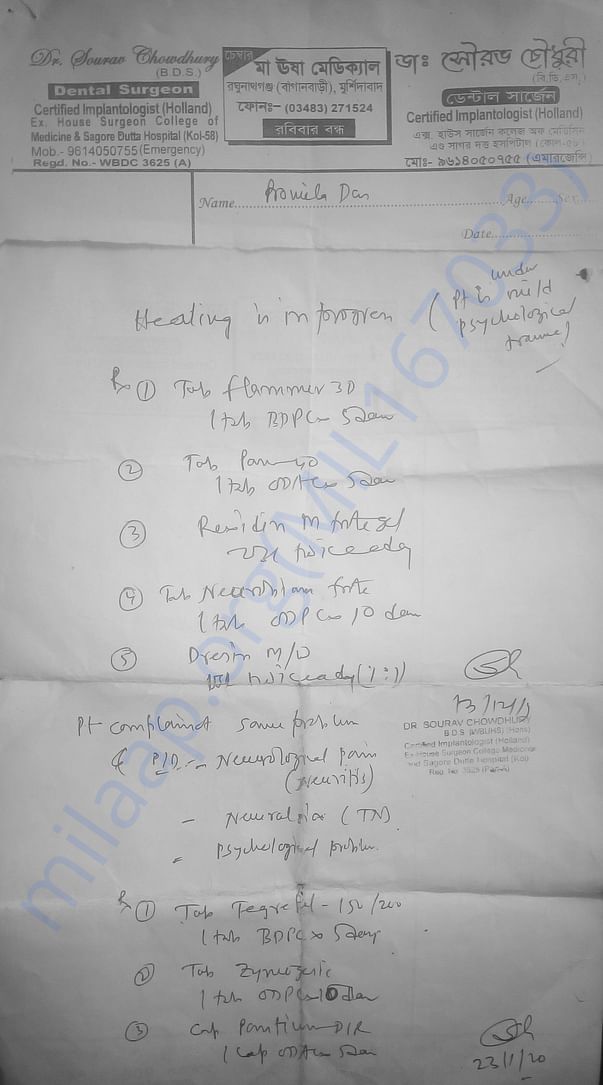 Dr. Sourav Chowdhury
(B.D.S.)
Dental Surgeon
Certified Implantologist (Holland)
Ex. House Surgeon College of
Medicine & Sagore Dutta Hospital (Kol-58)
Mob.- 9614050755 (Emergency)
Regd. No.- WBDC 3625 (A)
চেম্বার
মা ঊষা মেডিক্যাল
রঘুনাথগঞ্জ (বাগানবাড়ী), মুর্শিদাবাদ
ফোনঃ- (03483) 271524
রবিবার বন্ধ
ডাঃ সৌরভ চৌধুরী
(বি.ডি.এস.)
ডেন্টাল সার্জেন
Certified Implantologist (Holland)
এক্স. হাউস সার্জেন কলেজ অফ মেডিসিন
এণ্ড সাগর দত্ত হসপিটাল (কোল-৫৮)
মোঃ- ৯৬১৪০৫০৭৫৫ (এমারজেন্সি)
Name Promila Das Age Sex
Date
Healing is in progress (Pt is under mild
psychological
trauma)
Rx ① Tab Flammer 3D
1 tab BDPC x 5 days
② Tab Pan 40
1 tab ODAC x 5 days
③ Rexidin M forte gel
twice a day
④ Tab Neurobion forte
1 tab ODPC x 10 days
⑤ M/W
twice a day (1:1)
13/12/
DR. SOURAV CHOWDHURY
B.D.S (WBUHS) (Hons)
Certified Implantologist (Holland)
Ex House Surgeon College Medicine
and Sagore Dutta Hospital (Kol)
Reg No 3625 (Part-A)
Pt complain of same problem
P/D :- Neurological pain
(Neuritis)
- Neuralgia (TN)
- Psychological problem.
Rx ① Tab Tegretol - 150/200
1 tab BDPC x 5 days
② Tab
1 tab ODPC x 10 days
③ Cap DSR
1 cap ODAC x 5 days
23/1/20
milaap.org(MIL167033)